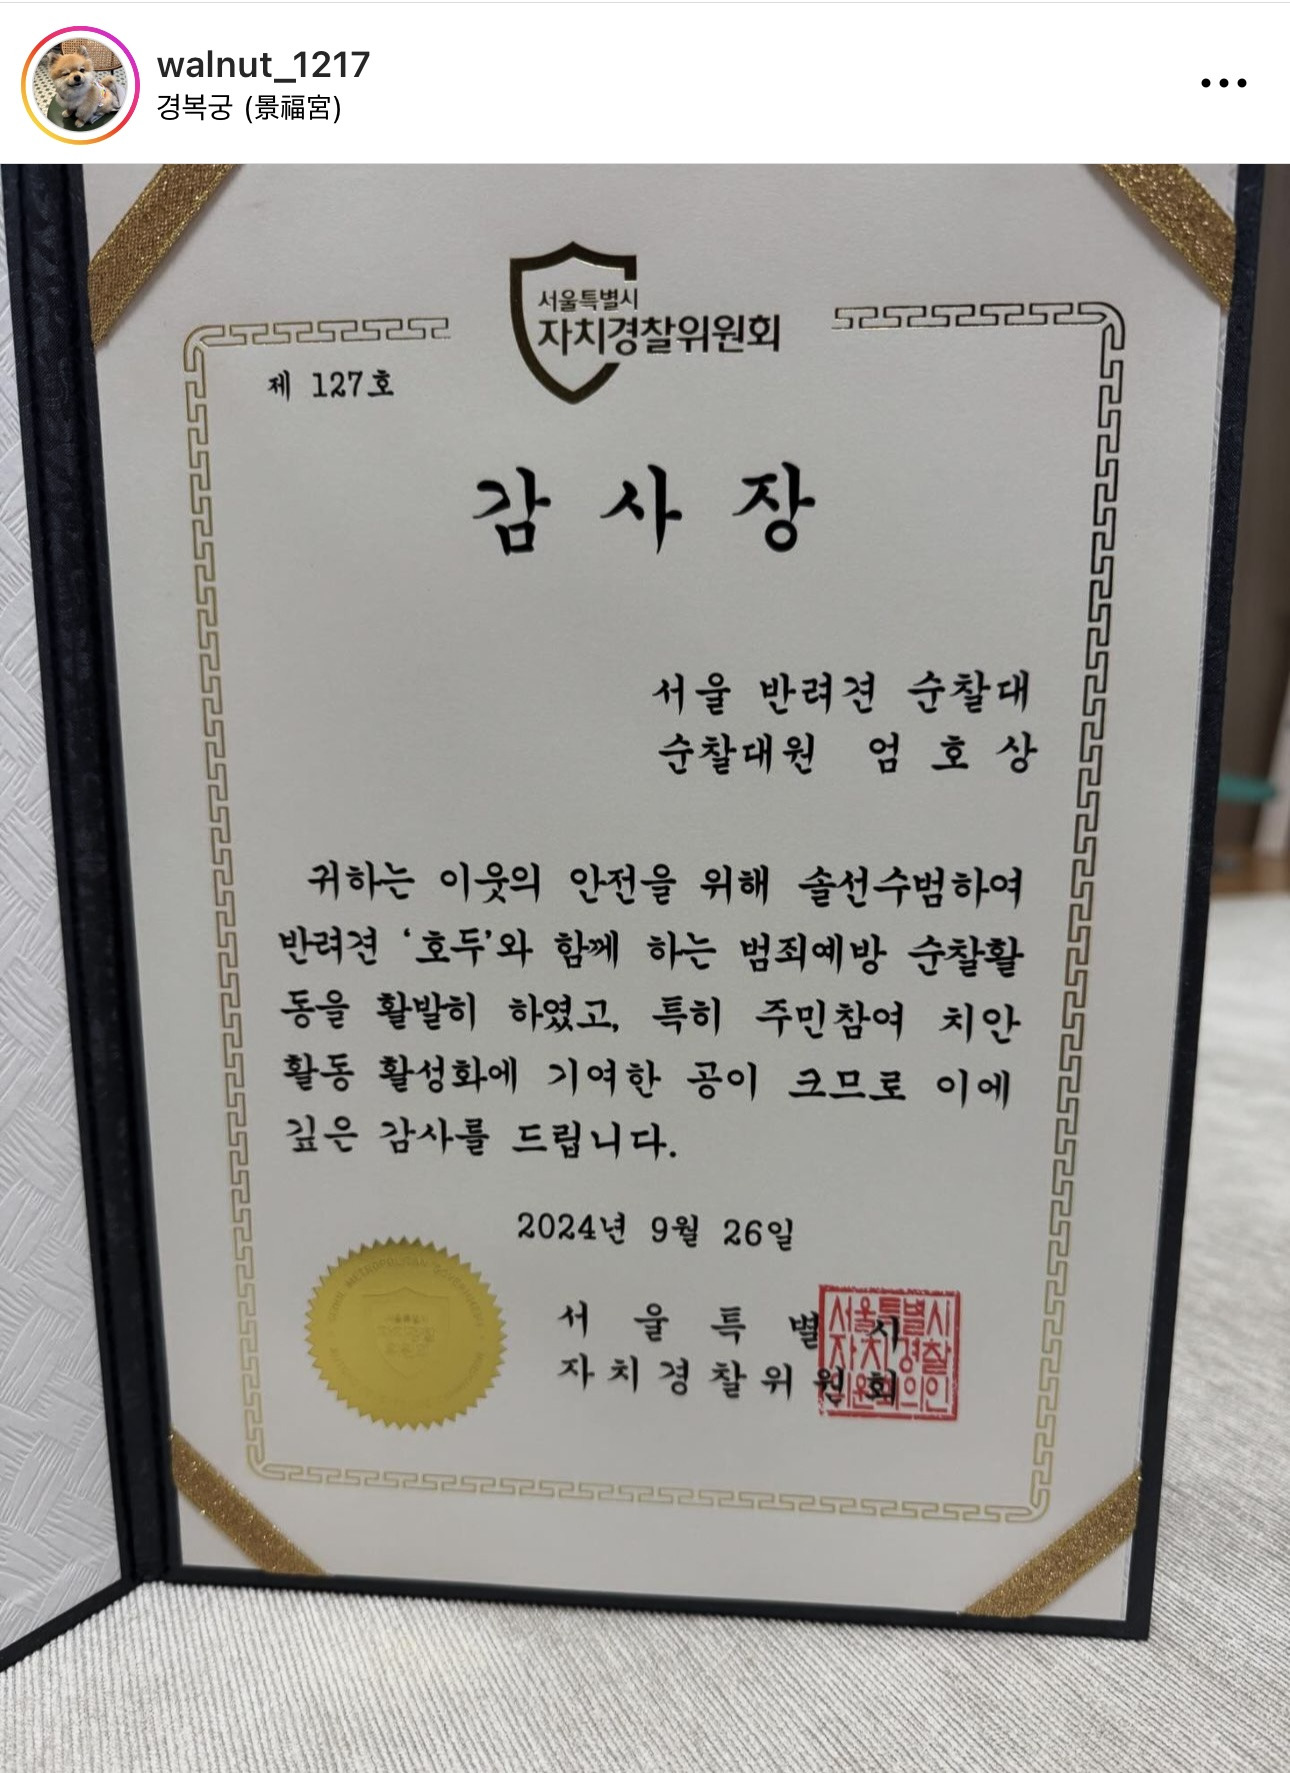 walnut_1217
경복궁 (景福宮)
서울특별시
자치경찰위원회
제 127호
감 사 장
서울 반려견 순찰대
순찰대원 엄 호 상
귀하는 이웃의 안전을 위해 솔선수범하여
반려견 ‘호두’와 함께 하는 범죄예방 순찰활
동을 활발히 하였고, 특히 주민참여 치안
활동 활성화에 기여한 공이 크므로 이에
깊은 감사를 드립니다.
2024년 9월 26일
서 울 특 별 시
자 치 경 찰 위 원 회
서울특별시
자치경찰
위원회의인